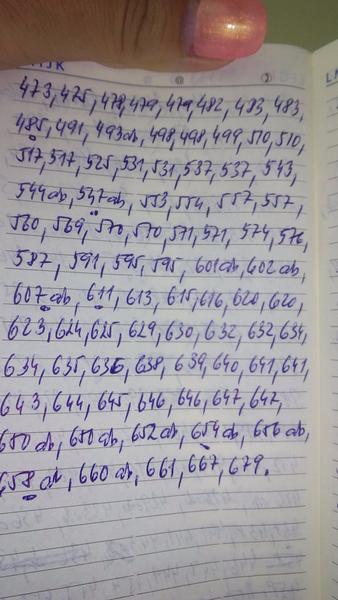 473, 475, 478, 479, 479, 482, 483, 483,
485, 491, 493ab, 498, 498, 499, 510, 510,
517, 517, 525, 531, 531, 537, 537, 543,
544ab, 547ab, 553, 554, 557, 557,
560, 569, 570, 570, 571, 571, 574, 576,
587, 591, 595, 595, 601ab, 602ab,
607ab, 611, 613, 615, 616, 620, 620,
623, 624, 625, 629, 630, 632, 632, 634,
634, 635, 636, 638, 639, 640, 641, 641,
643, 644, 645, 646, 646, 647, 647,
650ab, 650ab, 652ab, 654ab, 656ab,
658ab, 660ab, 661, 667, 679.